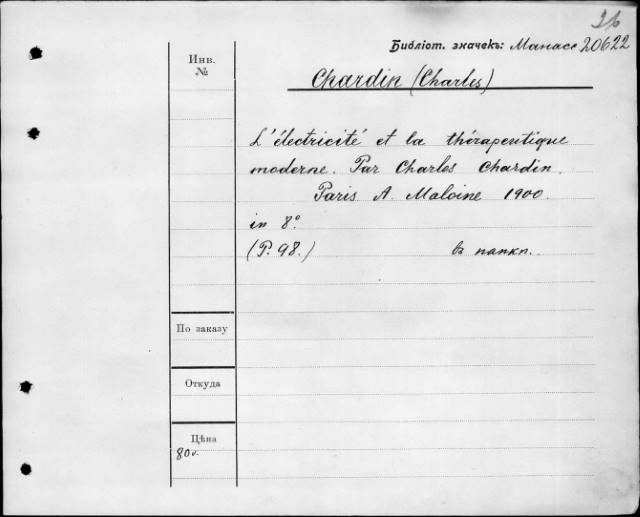 Библіот. значекъ: Манасе 20622
Инв.
№
Chardin (Charles)
L'électricité et la thérapeutique
moderne. Par Charles Chardin.
Paris A. Maloine 1900.
in 8º
(P. 98.) въ папкп.
По заказу
Откуда
Цѣна